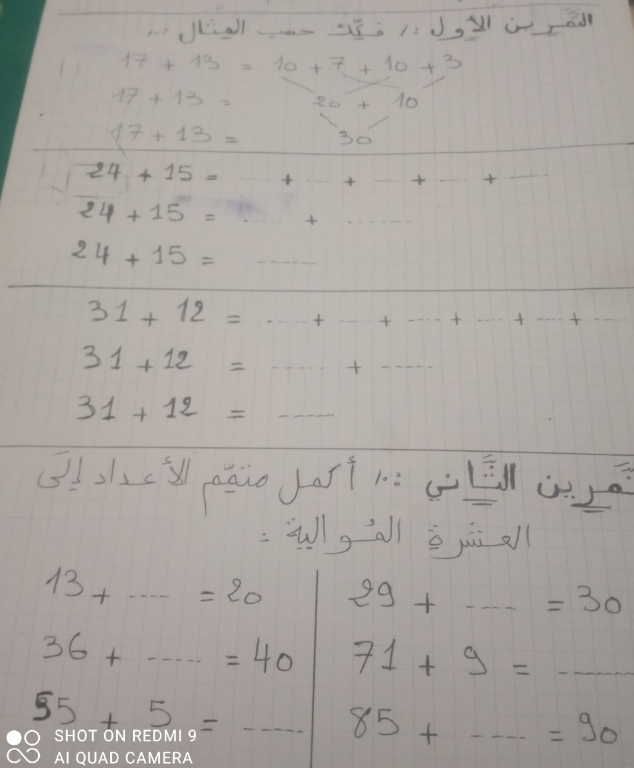 التمرين الأول :/ فكّك حسب المثال ...
17 + 13 = 10 + 7 + 10 + 3
17 + 13 = 20 + 10
17 + 13 = 30
24 + 15 = ..... + ..... + ..... + ..... + .....
24 + 15 = ..... + .....
24 + 15 = .....
31 + 12 = ..... + ..... + ..... + ..... + ..... + .....
31 + 12 = ..... + .....
31 + 12 = .....
تمرين الثَّاني :/ أكمل متمّم الأعداد إلَى
العشرة المُوالية :
13 + .... = 20
36 + ..... = 40
55 + 5 = .....
29 + .... = 30
71 + 9 = .....
85 + .... = 90
SHOT ON REDMI 9
AI QUAD CAMERA